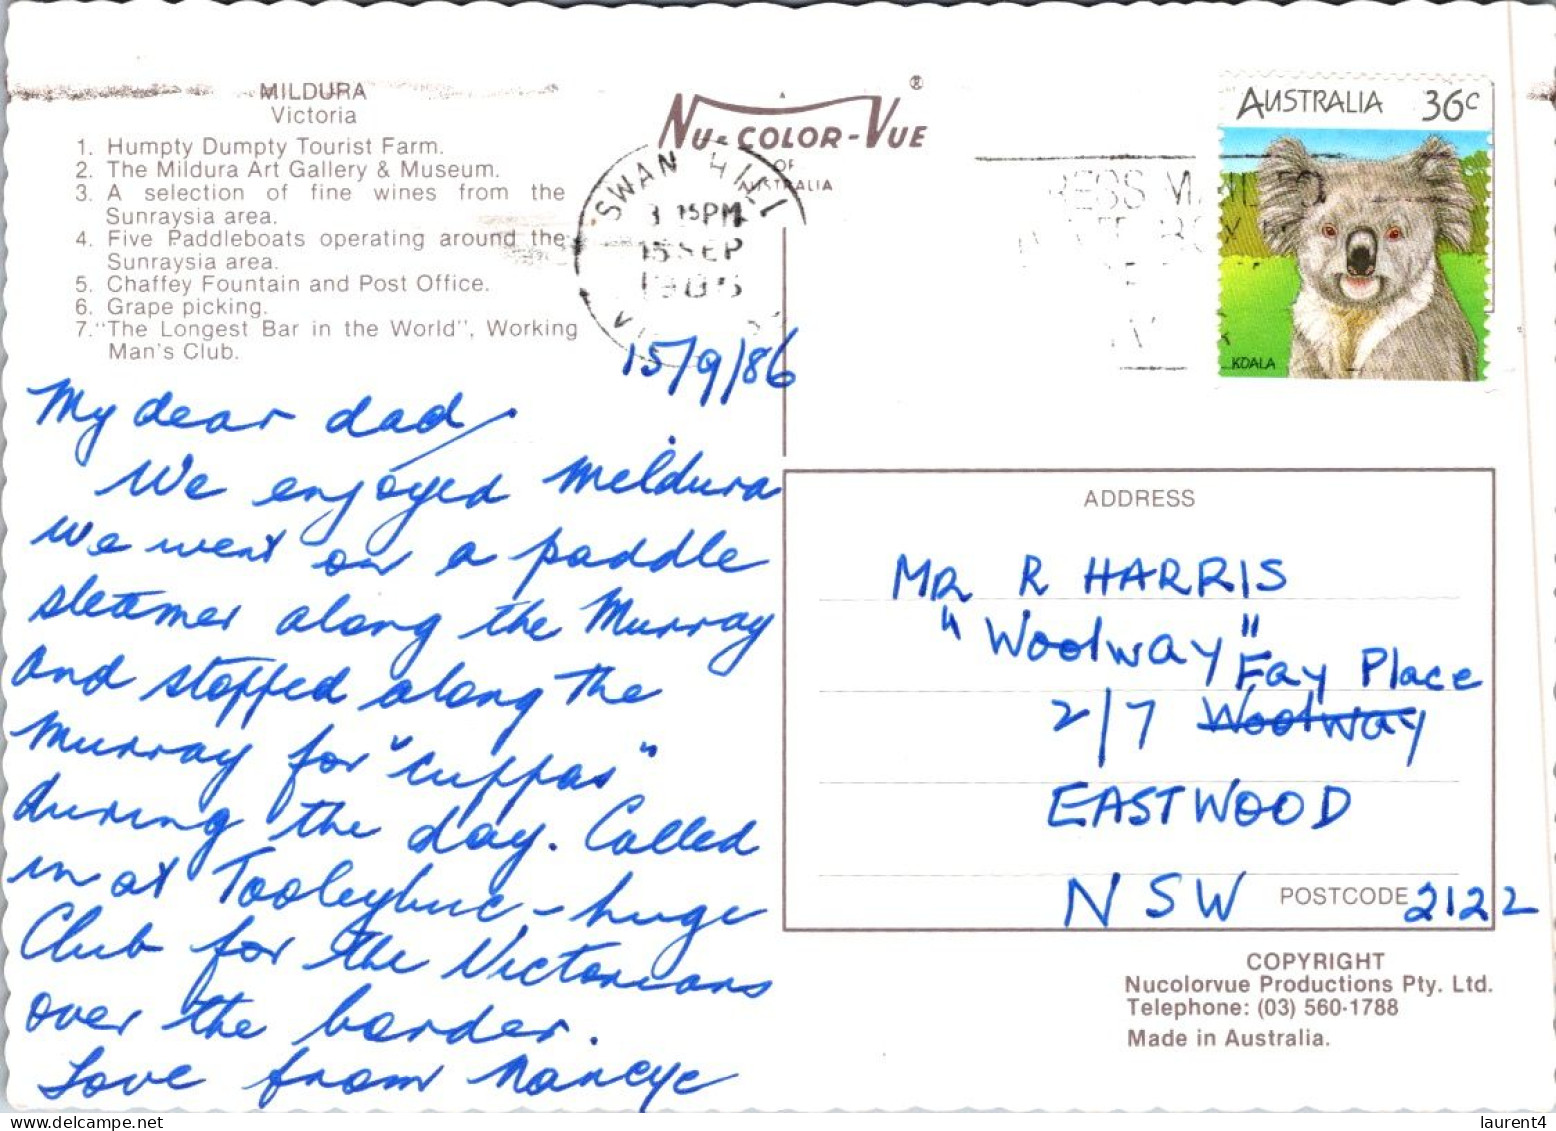 MILDURA
Victoria
1. Humpty Dumpty Tourist Farm.
2. The Mildura Art Gallery & Museum.
3. A selection of fine wines from the
Sunraysia area.
4. Five Paddleboats operating around the
Sunraysia area.
5. Chaffey Fountain and Post Office.
6. Grape picking.
7. "The Longest Bar in the World", Working
Man's Club.
NU-COLOR-VUE ®
OF
AUSTRALIA
SWAN HILL
15PM
15 SEP
AUSTRALIA 36c
KOALA
15/9/86
My dear dad,
We enjoyed Meldura
We went on a paddle
steamer along the Murray
and stopped along the
Murray for "cuppas"
during the day. Called
in at Tooleybuc - huge
Club for the Victorians
over the border.
Love from Nancye
ADDRESS
MR R HARRIS
"Woolway" Fay Place
2/7 Woolway
EASTWOOD
NSW POSTCODE 2122
COPYRIGHT
Nucolorvue Productions Pty. Ltd.
Telephone: (03) 560-1788
Made in Australia.
www.delcampe.net
laurent4